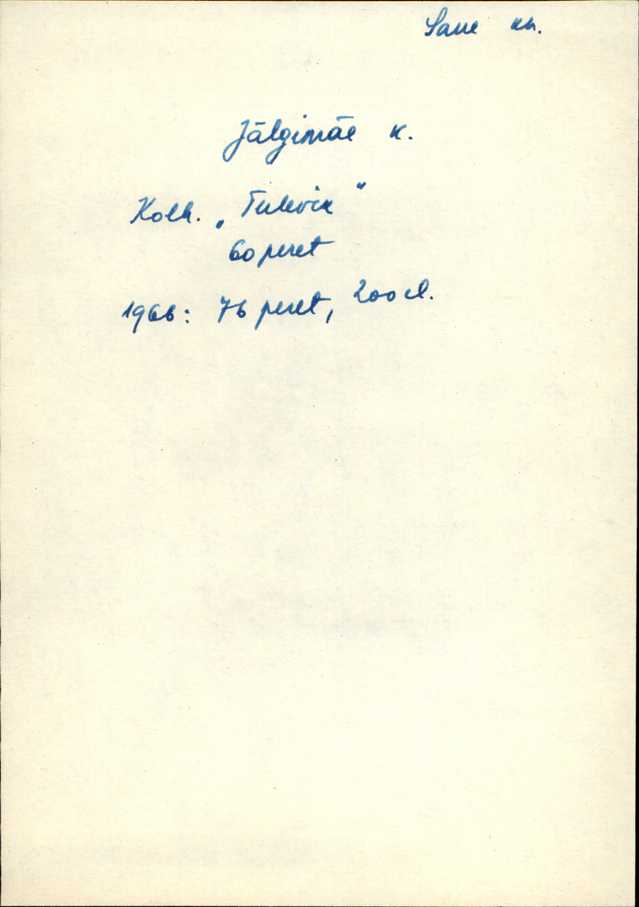 Saue kn.
Jälgimäe k.
Kolh. „Tulevik"
60 peret
1966: 76 peret, 200 el.